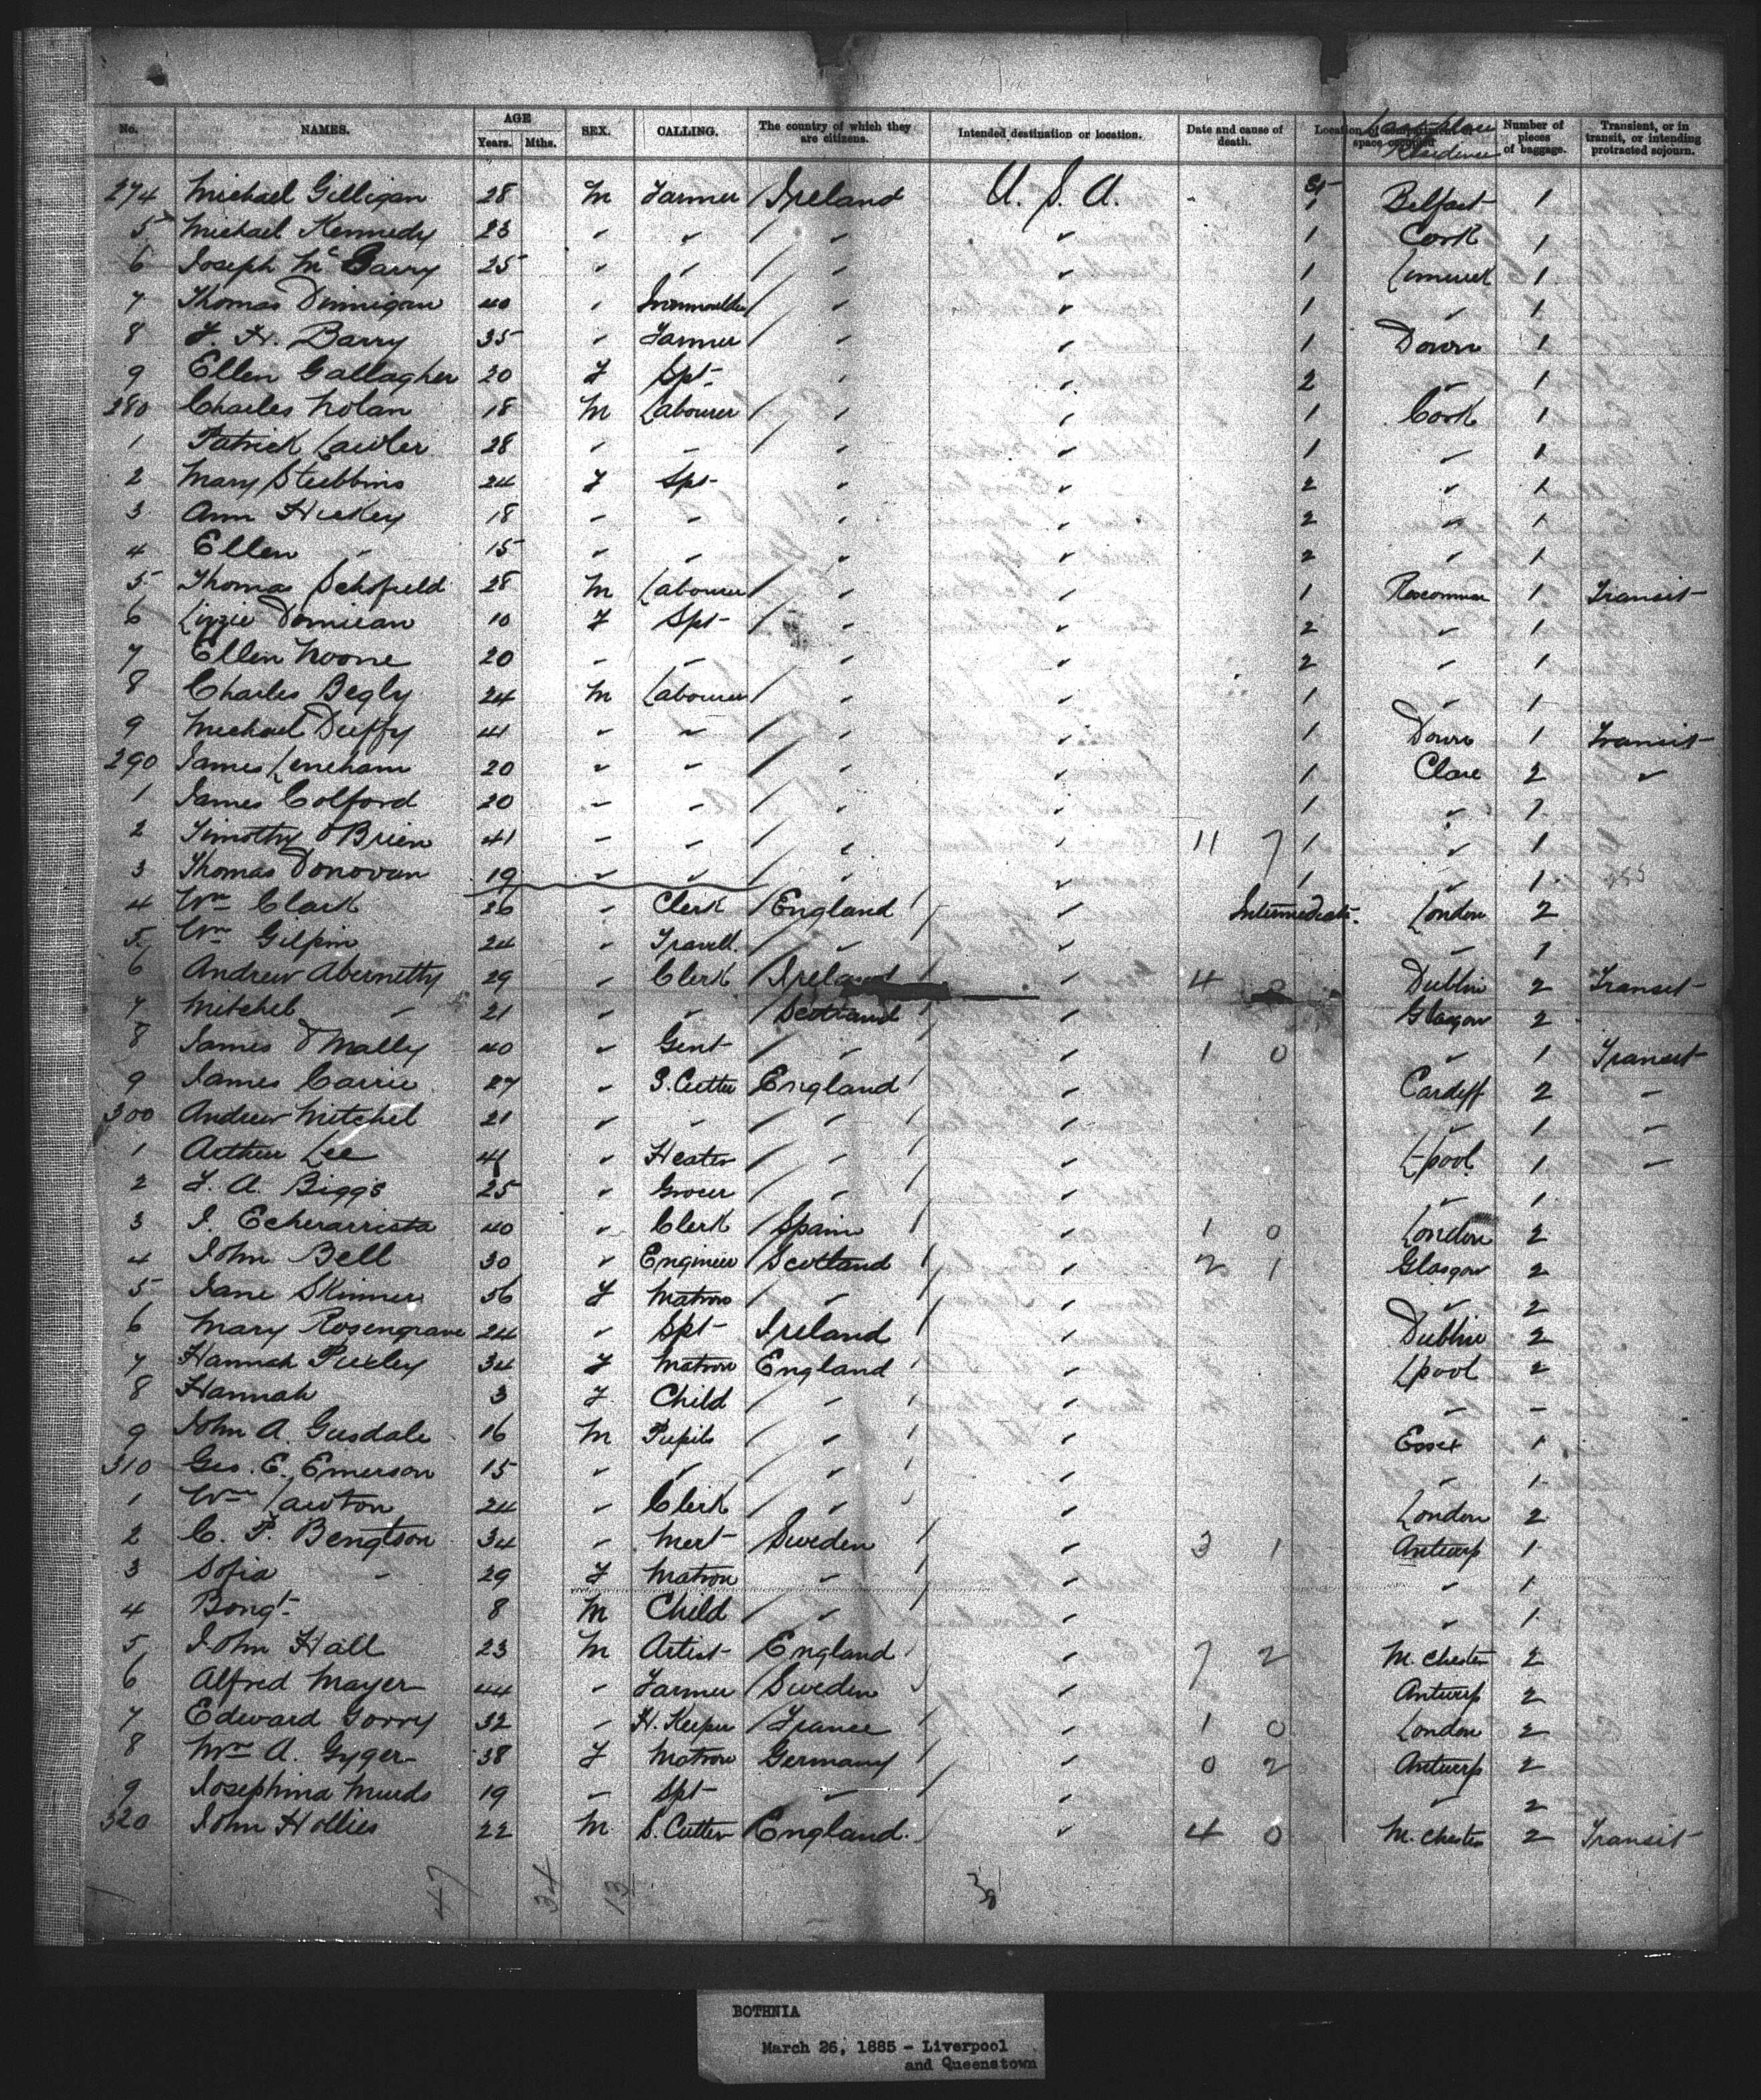 No. NAMES. AGE Years. Mths. SEX. CALLING. The country of which they are citizens. Intended destination or location. Date and cause of death. Location of compartment or space occupied Last place Residence Number of pieces of baggage. Transient, or in transit, or intending protracted sojourn.
274 Michael Gilligan 28 M Farmer / Ireland U. S. A. 1 Belfast 1
5 Michael Kennedy 23 " " / " " 1 Cork 1
6 Joseph McGarry 25 " " / " " 1 Limerick 1
7 Thomas Dinnigan 40 " Ironmoulder / " " 1 " 1
8 J. H. Barry 35 " Farmer / " " 1 Down 1
9 Ellen Gallagher 20 F Spt " " 2 " 1
280 Charles Nolan 18 M Labourer / " " 1 Cork 1
1 Patrick Lawler 28 " " / " " 1 " 1
2 Mary Stubbins 24 F Spt " " 2 " 1
3 Ann Hickey 18 " " " " 2 " 1
4 Ellen " 15 " " " " 2 " 1
5 Thomas Schofield 28 M Labourer / " " 1 Roscommon 1 Transit
6 Lizzie 10 F Spt / " " 2 " 1
7 Ellen Noone 20 " " / " " 2 " 1
8 Charles Begly 24 M Labourer / " " 1 " 1
9 Michael Duffy 41 " " / " " 1 Down 1 Transit
290 James Leneham 20 " " / " " 1 Clare 2 "
1 James Colford 20 " " / " " 1 " 1
2 Timothy O'Brien 41 " " / " " 11 7 1 " 1
3 Thomas Donovan 19 " " / " " 1 " 1
4 Wm Clark 26 " Clerk / England " Intermediate. London 2
5 Wm Gilpin 24 " Travell. / " " " 1
6 Andrew Abernethy 29 " Clerk / Ireland " 4 Dublin 2 Transit
7 Mitchel " 21 " " / Scotland " Glasgow 2
8 James O'Mally 40 " Gent / " " 1 0 " 1 Transit
9 James Carrie 27 " S. Cutter England " Cardiff 2 "
300 Andrew Mitchel 21 " " / " " " 1 "
1 Arthur Lee 41 " Heater / " " L'pool 1 "
2 J. A. Biggs 25 " Grocer / " " " 1
3 J. Echerarrista 40 " Clerk / Spain " 1 0 London 2
4 John Bell 30 " Engineer / Scotland " 2 1 Glasgow 2
5 Jane Skinner 56 F Matron / " " " 2
6 Mary Rosengrave 24 " Spt Ireland " Dublin 2
7 Hannah Puxley 34 F Matron England " L'pool 2
8 Hannah 3 F Child / " " " "
9 John A. Gusdale 16 M Pupils / " " Essex 1
310 Geo. E. Emerson 15 " " / " " " 1
1 Wm Lawton 24 " Clerk / " " London 2
2 C. P. Bengtson 34 " Mert Sweden " 3 1 Antwerp 1
3 Sofia " 29 F Matron " " " 1
4 Bengt 8 M Child / " " " 1
5 John Hall 23 M Artist England " 7 2 M. chester 2
6 Alfred Mayer 44 " Farmer / Sweden " Antwerp 2
7 Edward Gorry 32 " H. Keeper / France " 1 0 London 2
8 Mrs A. Gyger 38 F Matron Germany " 0 2 Antwerp 2
9 Josephina 19 " Spt " " " 2
320 John Hollies 22 M S. Cutter England. " 4 0 M. chester 2 Transit
47 34 13
BOTHNIA
March 26, 1885 - Liverpool
and Queenstown